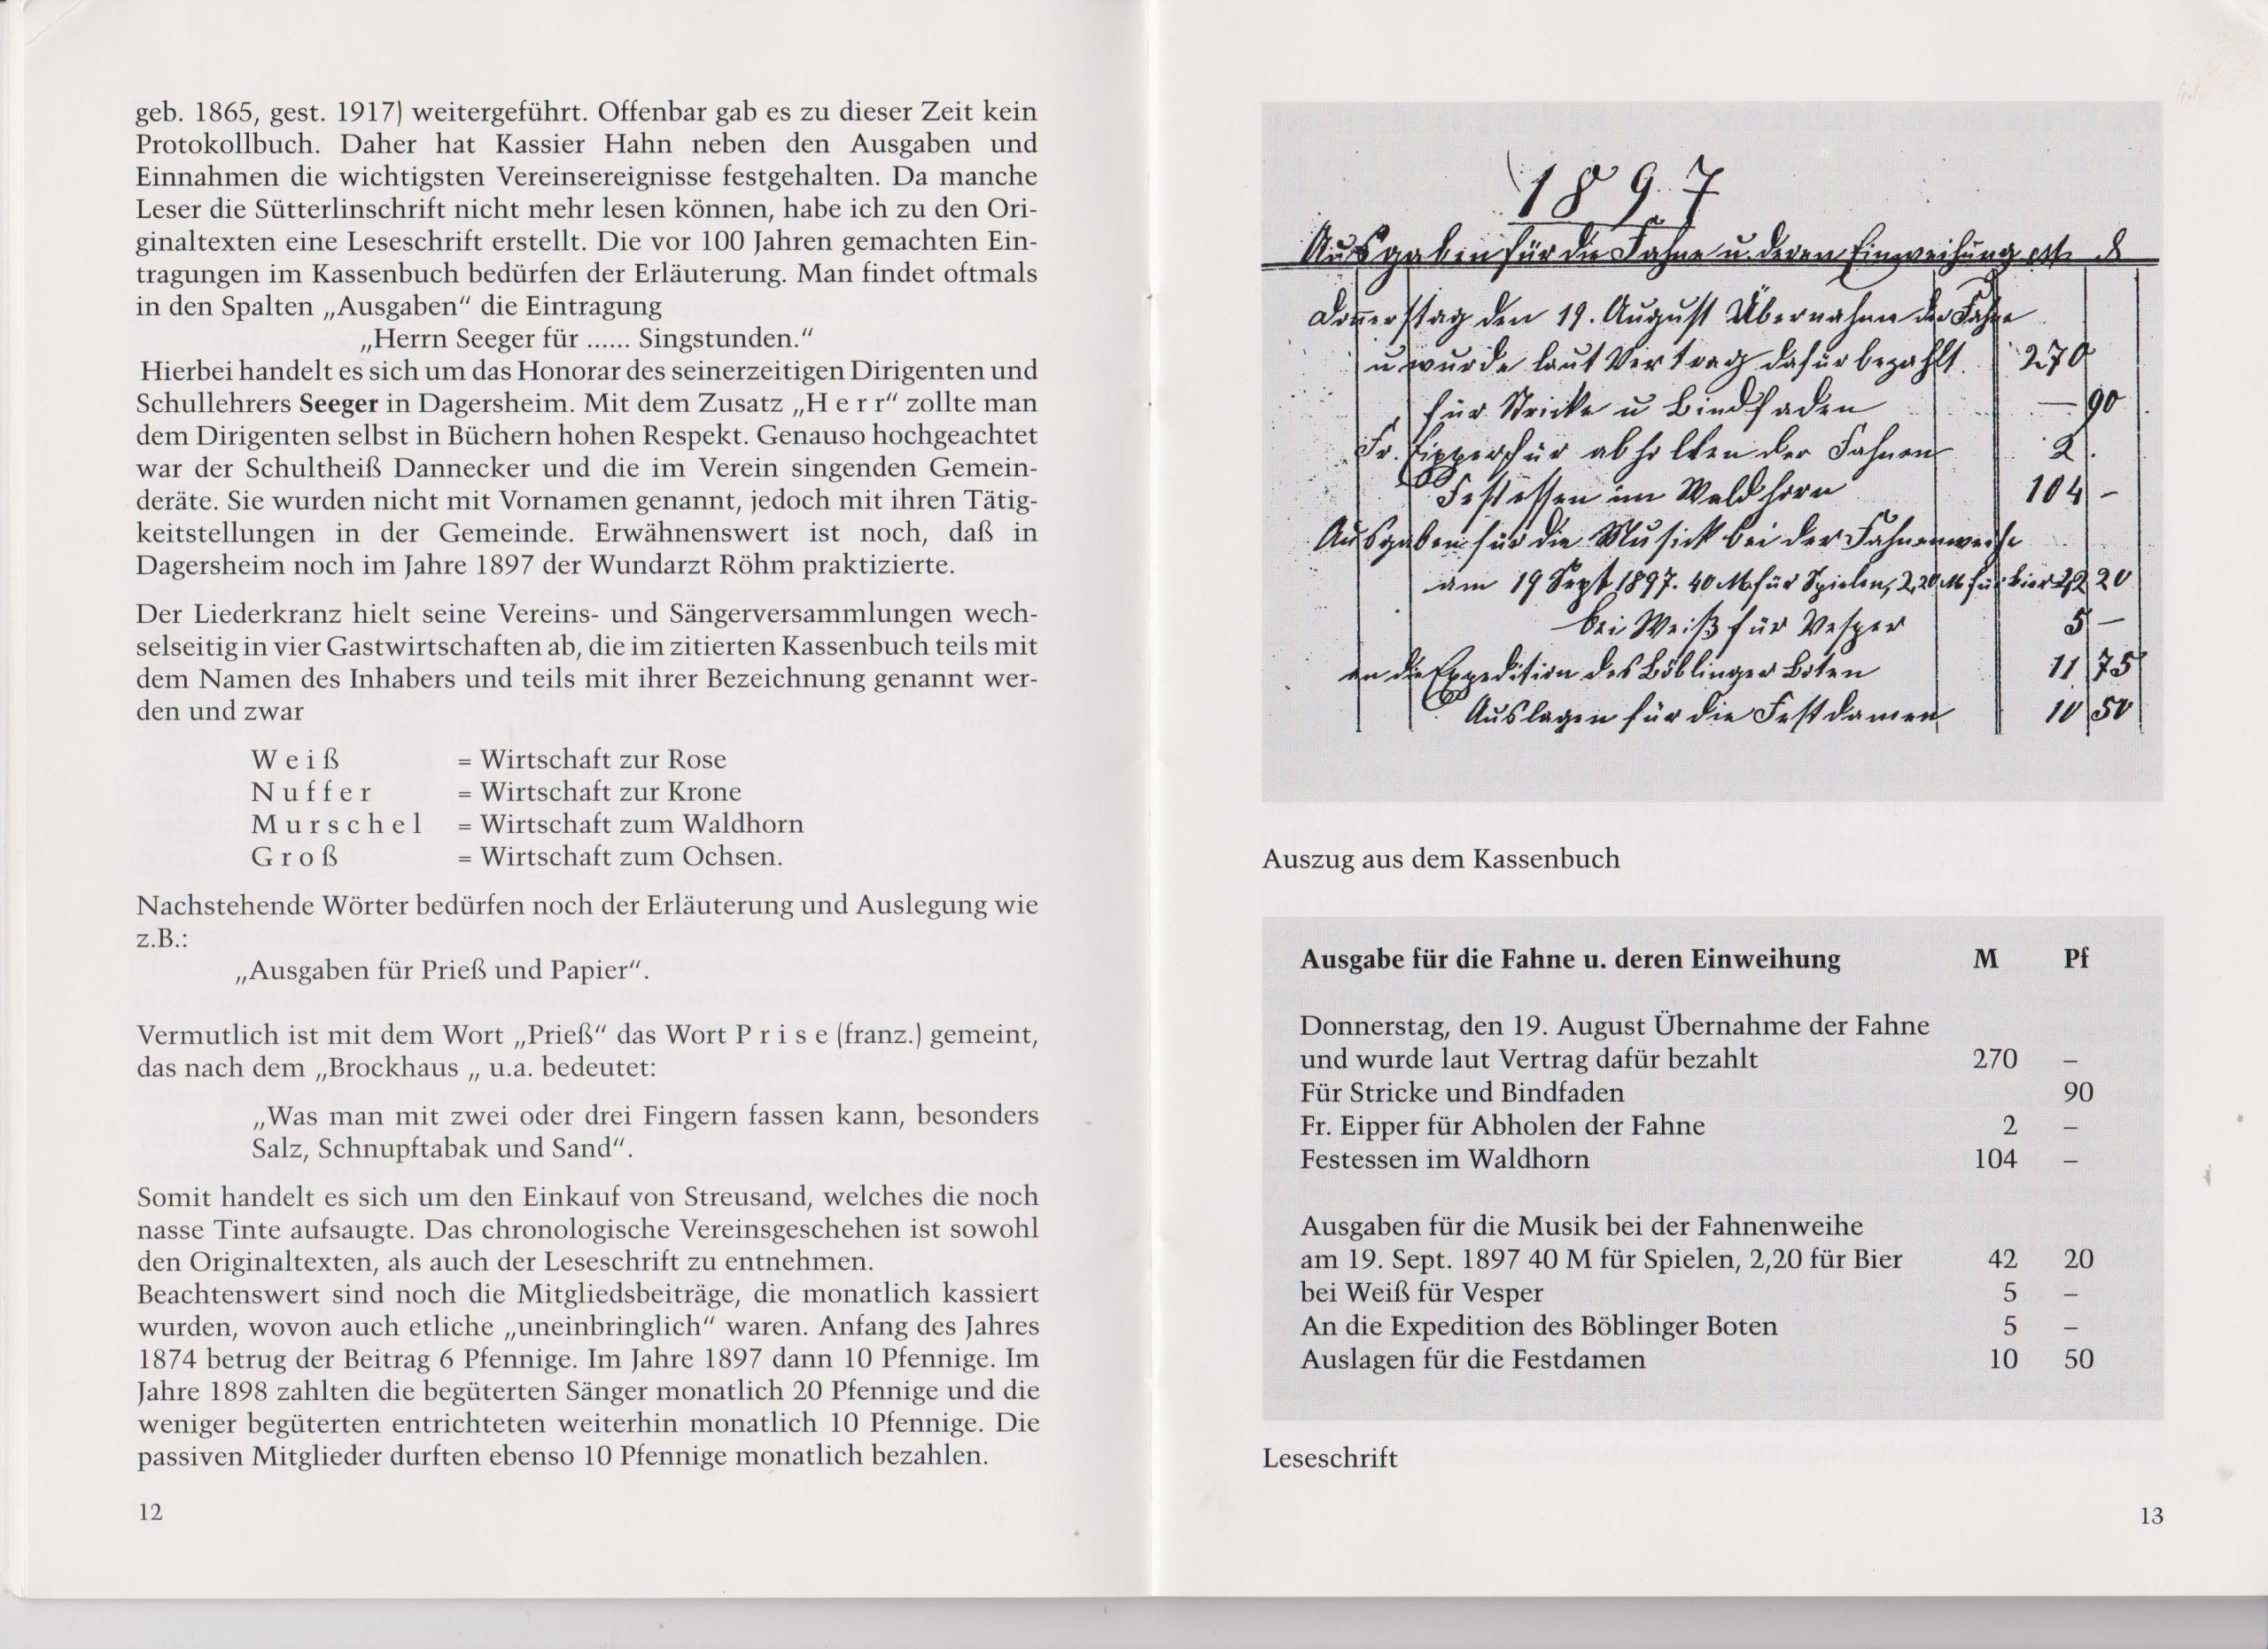 geb. 1865, gest. 1917) weitergeführt. Offenbar gab es zu dieser Zeit kein
Protokollbuch. Daher hat Kassier Hahn neben den Ausgaben und
Einnahmen die wichtigsten Vereinsereignisse festgehalten. Da manche
Leser die Sütterlinschrift nicht mehr lesen können, habe ich zu den Ori-
ginaltexten eine Leseschrift erstellt. Die vor 100 Jahren gemachten Ein-
tragungen im Kassenbuch bedürfen der Erläuterung. Man findet oftmals
in den Spalten „Ausgaben“ die Eintragung
„Herrn Seeger für ...... Singstunden.“
Hierbei handelt es sich um das Honorar des seinerzeitigen Dirigenten und
Schullehrers Seeger in Dagersheim. Mit dem Zusatz „H e r r“ zollte man
dem Dirigenten selbst in Büchern hohen Respekt. Genauso hochgeachtet
war der Schultheiß Dannecker und die im Verein singenden Gemein-
deräte. Sie wurden nicht mit Vornamen genannt, jedoch mit ihren Tätig-
keitstellungen in der Gemeinde. Erwähnenswert ist noch, daß in
Dagersheim noch im Jahre 1897 der Wundarzt Röhm praktizierte.
Der Liederkranz hielt seine Vereins- und Sängerversammlungen wech-
selseitig in vier Gastwirtschaften ab, die im zitierten Kassenbuch teils mit
dem Namen des Inhabers und teils mit ihrer Bezeichnung genannt wer-
den und zwar
W e i ß = Wirtschaft zur Rose
N u f f e r = Wirtschaft zur Krone
M u r s c h e l = Wirtschaft zum Waldhorn
G r o ß = Wirtschaft zum Ochsen.
Nachstehende Wörter bedürfen noch der Erläuterung und Auslegung wie
z.B.:
„Ausgaben für Prieß und Papier“.
Vermutlich ist mit dem Wort „Prieß“ das Wort P r i s e (franz.) gemeint,
das nach dem „Brockhaus „ u.a. bedeutet:
„Was man mit zwei oder drei Fingern fassen kann, besonders
Salz, Schnupftabak und Sand“.
Somit handelt es sich um den Einkauf von Streusand, welches die noch
nasse Tinte aufsaugte. Das chronologische Vereinsgeschehen ist sowohl
den Originaltexten, als auch der Leseschrift zu entnehmen.
Beachtenswert sind noch die Mitgliedsbeiträge, die monatlich kassiert
wurden, wovon auch etliche „uneinbringlich“ waren. Anfang des Jahres
1874 betrug der Beitrag 6 Pfennige. Im Jahre 1897 dann 10 Pfennige. Im
Jahre 1898 zahlten die begüterten Sänger monatlich 20 Pfennige und die
weniger begüterten entrichteten weiterhin monatlich 10 Pfennige. Die
passiven Mitglieder durften ebenso 10 Pfennige monatlich bezahlen.
12
1897
Ausgaben für die Fahne u. deren Einweihung
Donnerstag den 19. August Übernahme der Fahne
u wurde laut Vertrag dafür bezahlt. 270
für Stricke u Bindfaden — 90
Fr. Eipper für abholten der Fahnen 2.
Festessen im Waldhorn 104 –
Ausgaben für die Musick bei der Fahnenweihe
am 19 Sept 1897. 40 M für Spielen, 2,20 M für Bier 42 20
bei Weiß für Vesper 5 –
an die Expedition des Böblinger Boten 11 75
Auslagen für die Festdamen 10 50
Auszug aus dem Kassenbuch
Ausgabe für die Fahne u. deren Einweihung M Pf
Donnerstag, den 19. August Übernahme der Fahne
und wurde laut Vertrag dafür bezahlt 270 –
Für Stricke und Bindfaden 90
Fr. Eipper für Abholen der Fahne 2 –
Festessen im Waldhorn 104 –
Ausgaben für die Musik bei der Fahnenweihe
am 19. Sept. 1897 40 M für Spielen, 2,20 für Bier 42 20
bei Weiß für Vesper 5 –
An die Expedition des Böblinger Boten 5 –
Auslagen für die Festdamen 10 50
Leseschrift
13